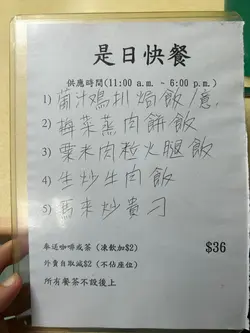 是日快餐
供應時間(11:00 a.m. - 6:00 p.m.)
1) 葡汁鷄扒焗飯/意
2) 梅菜蒸肉餅飯
3) 粟米肉粒火腿飯
4) 生炒牛肉飯
5) 馬来炒貴刁
奉送咖啡或茶 (凍飲加$2)
外賣自取減$2 (不佔座位)
$36
所有餐茶不設後上